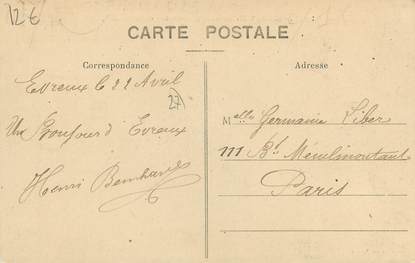 12€
CARTE POSTALE
Correspondance
Adresse
Evreux le 22 Avril
27
Un Bonjour d'Evreux
Henri
Melle Germaine Liber
111 Bd Ménilmontant
Paris